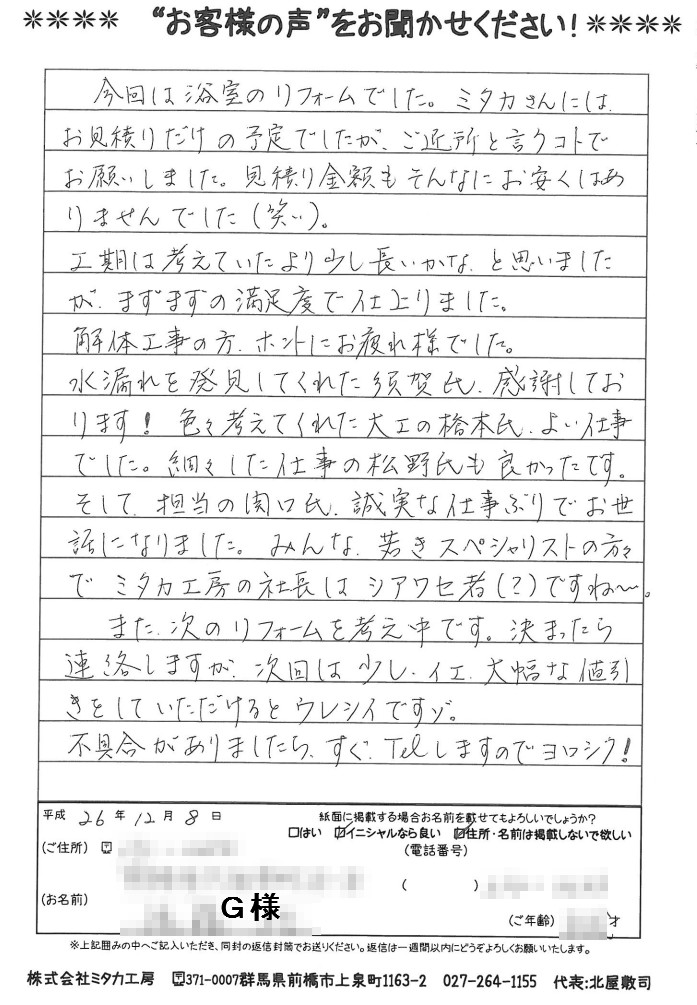 ＊＊＊＊ “お客様の声”をお聞かせください！＊＊＊＊
今回は浴室のリフォームでした。ミタカさんには、
お見積りだけの予定でしたが、ご近所と言うコトで
お願いしました。見積り金額もそんなにお安くはあ
りませんでした（笑い）。
工期は考えていたより少し長いかな、と思いました
が、まずまずの満足度で仕上りました。
解体工事の方、ホントにお疲れ様でした。
水漏れを発見してくれた須賀氏、感謝してお
ります！色々考えてくれた大工の橋本氏、よい仕事
でした。細々した仕事の松野氏も良かったです。
そして、担当の関口氏、誠実な仕事ぶりでお世
話になりました。みんな、若きスペシャリストの方々
で ミタカ工房の社長はシアワセ者（？）ですね〜。
また、次のリフォームを考え中です。決まったら
連絡しますが、次回は少し、イエ、大幅な値引
きをしていただけるとウレシイですゾ。
不具合がありましたら、すぐ、Telしますのでヨロシク！
平成 26 年 12 月 8 日 紙面に掲載する場合お名前を載せてもよろしいでしょうか？
□はい ☑イニシャルなら良い ☑住所・名前は掲載しないで欲しい
（ご住所） 〒 （電話番号）
（ ）
（お名前） G様
（ご年齢） 才
※上記囲みの中へご記入いただき、同封の返信封筒でお送りください。返信は一週間以内にどうぞよろしくお願いいたします。
株式会社ミタカ工房 〒371-0007群馬県前橋市上泉町1163-2 027-264-1155 代表:北屋敷司